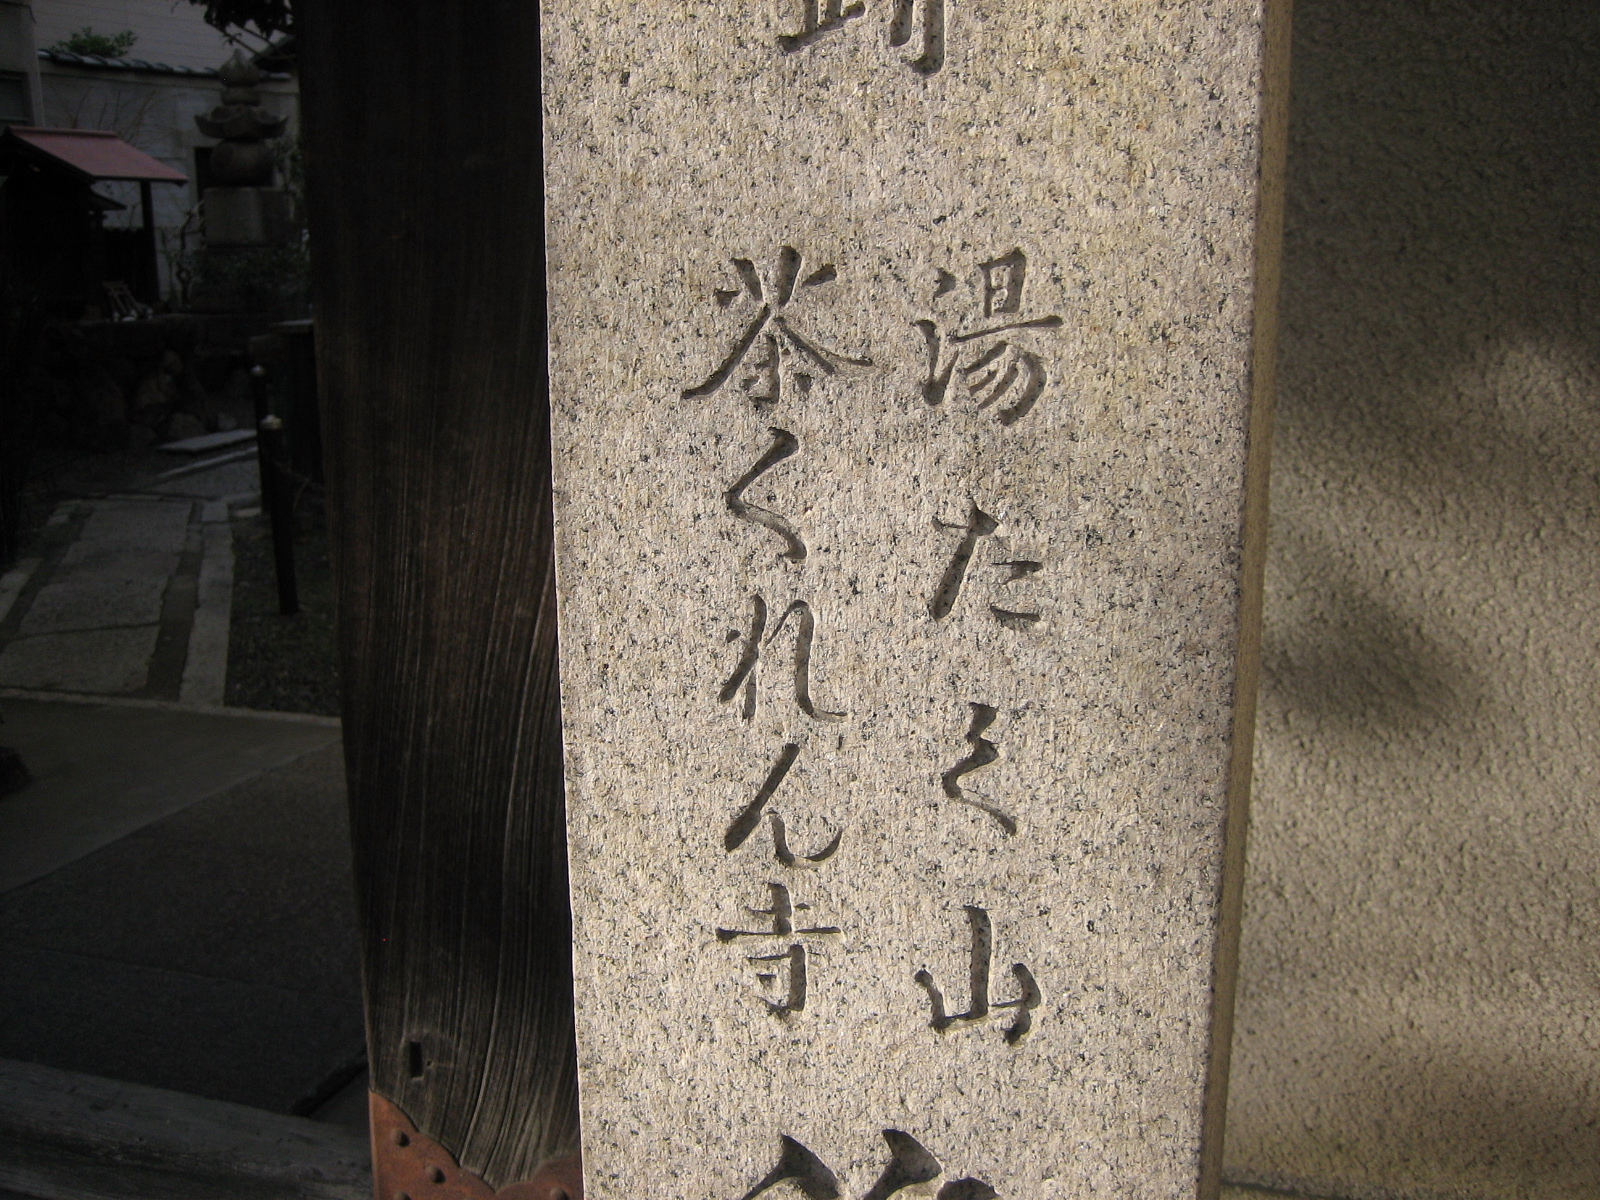 湯たく山
茶くれん寺